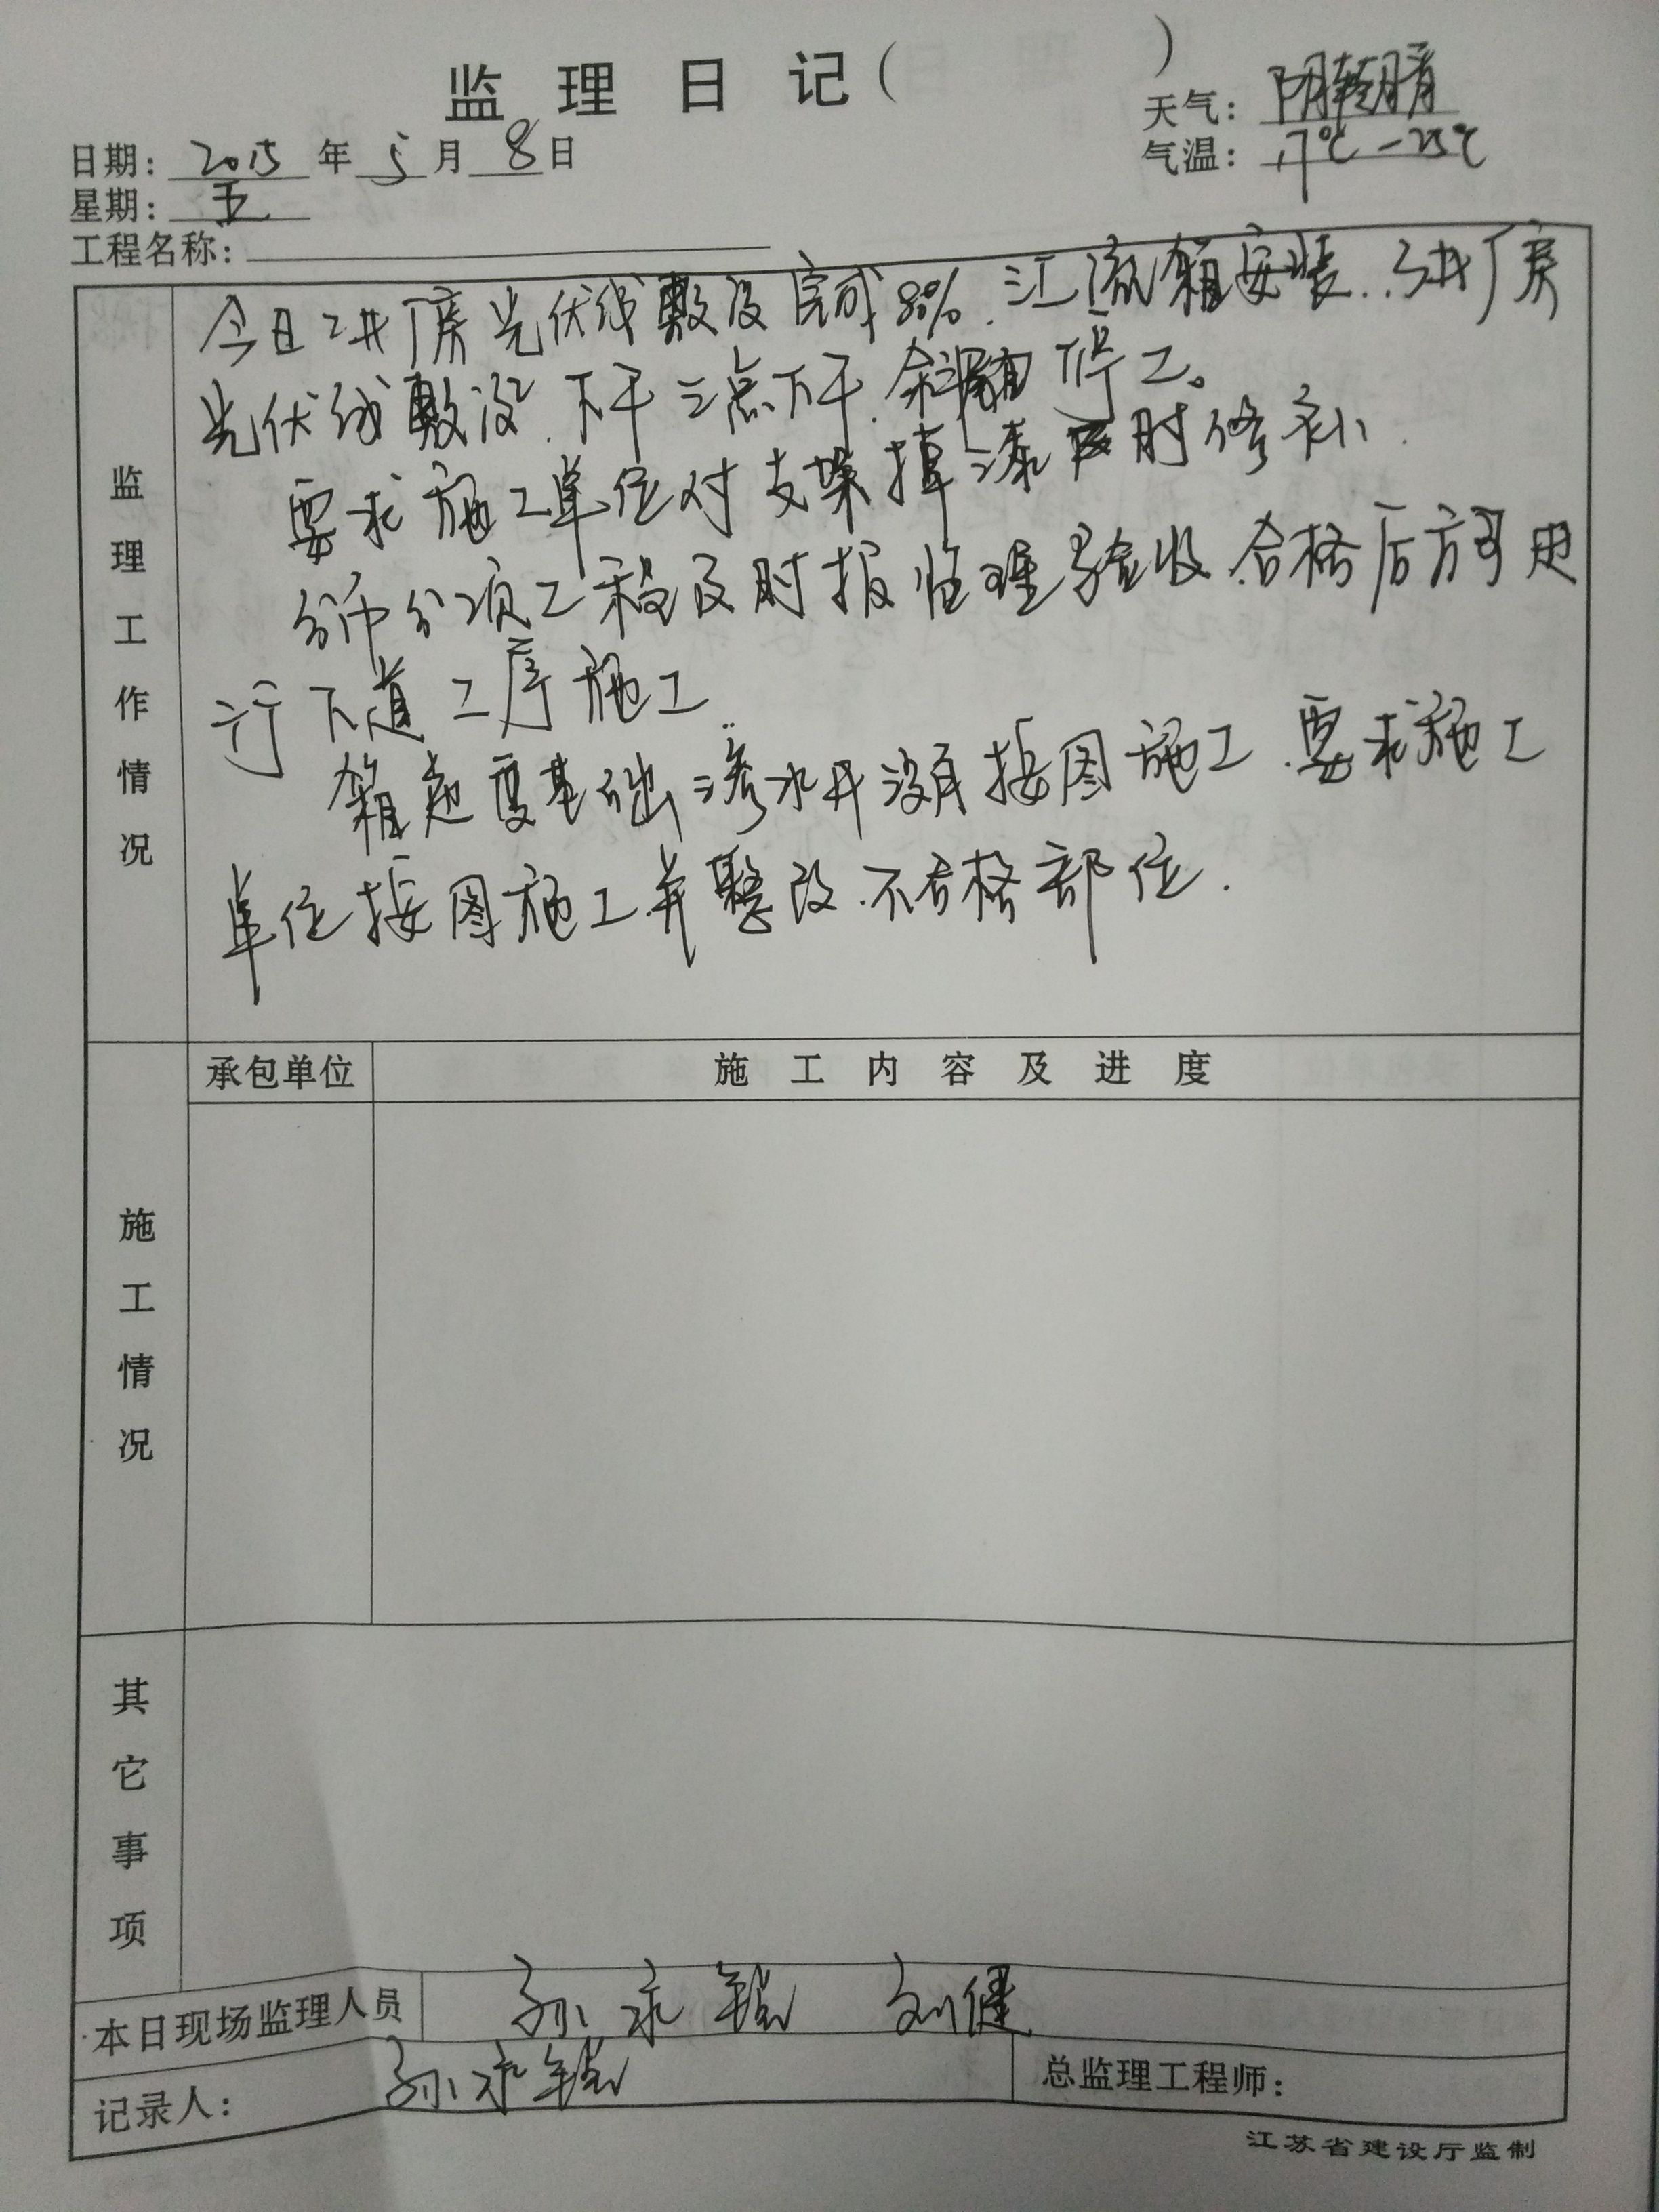 监理日记( )
天气: 阴转晴
日期: 2015 年 5 月 8 日
气温: 17℃-25℃
星期: 五
工程名称:
监理工作情况
今日2#厂房光伏线敷设完成80%.江流箱安装..3#厂房
光伏线敷设.下午三点下午.停工。
要求施工单位对支架掉漆及时修补.
分部分项工程及时报监理验收.合格后方可进
行下道工序施工.
箱变基础渗水井没有按图施工.要求施工
单位按图施工.并整改.不合格部位.
施工情况
承包单位 施工内容及进度
其它事项
本日现场监理人员 孙永 刘健
记录人: 孙永 总监理工程师:
江苏省建设厅监制